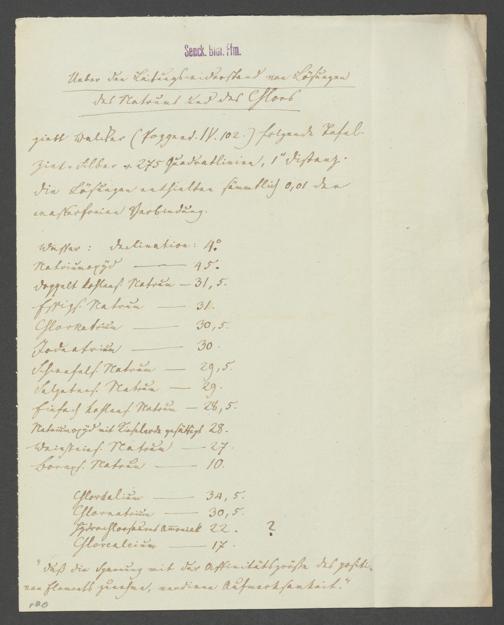 Senck. Bibl. Ffm.
Ueber den Leitungswiderstand von Lösungen
des Natrons und des Chlors
giebt Walcker (Poggend. IV. 102.) folgende Tafel.
Zink-Silber v. 275 Quadratlinien, 1" Distanz.
Die Lösungen enthielten sämmtlich 0,01 der
wasserfreien Verbindung.
Wasser: Declination: 4°.
Natriumoxyd — 45.
Doppelt kohlens. Natron — 31,5.
Essigs. Natron — 31.
Chlornatrium — 30,5.
Jodnatrium — 30.
Schwefels. Natron — 29,5.
Salpeters. Natron — 29.
Einfach kohlens. Natron — 28,5.
Natriumoxyd mit gesättigt 28.
Weinsteins. Natron — 27.
Boraxs. Natron — 10.
Chlorkalium — 34,5.
Chlornatrium — 30,5.
Hydrochlorsaures Ammoniak 22. ?
Chlorcalcium — 17.
"Daß die mit der Affinitätsgröße des positi-
ven Elements zunehme, verdiene Aufmerksamkeit."